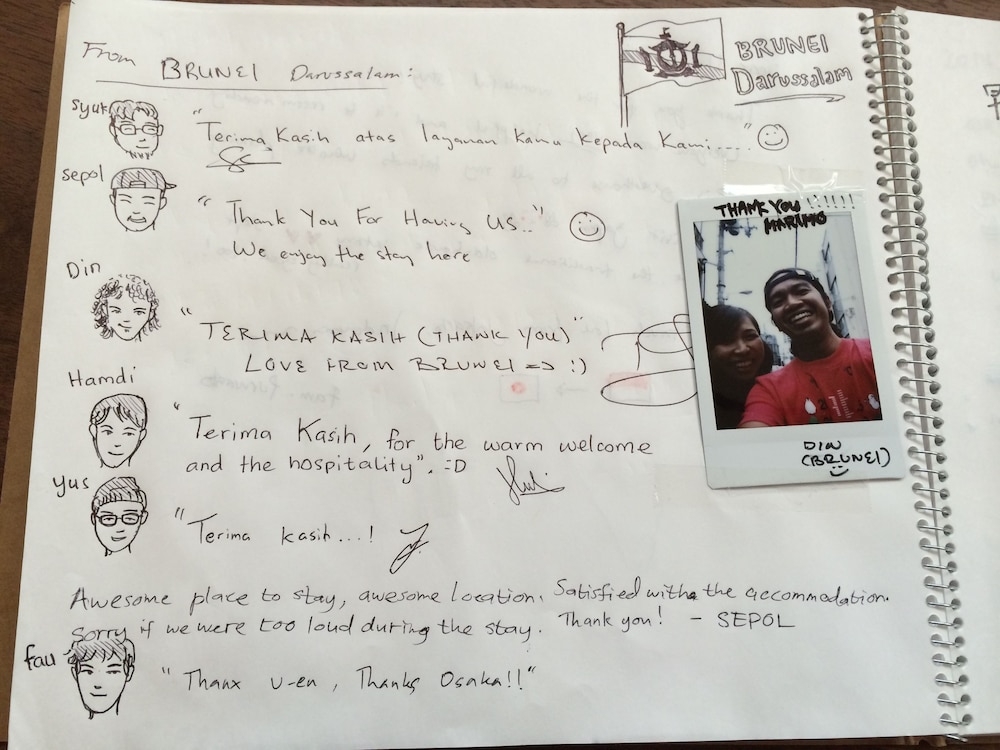 From BRUNEI Darussalam:
BRUNEI
Darussalam
Syuk
"Terima Kasih atas layanan kamu kepada kami....."
Sepol
"Thank You For Having Us.."
We enjoy the stay here
THANK YOU !!!!!!
MARIMO
Din
"TERIMA KASIH (THANK YOU)"
LOVE FROM BRUNEI => :)
Hamdi
"Terima Kasih, for the warm welcome
and the hospitality". =D
DIN
(BRUNEI)
Yus
"Terima kasih...!
Awesome place to stay, awesome location. Satisfied with the accommodation.
Sorry if we were too loud during the stay. Thank you! - SEPOL
"Thanx u-en, Thanks Osaka!!"